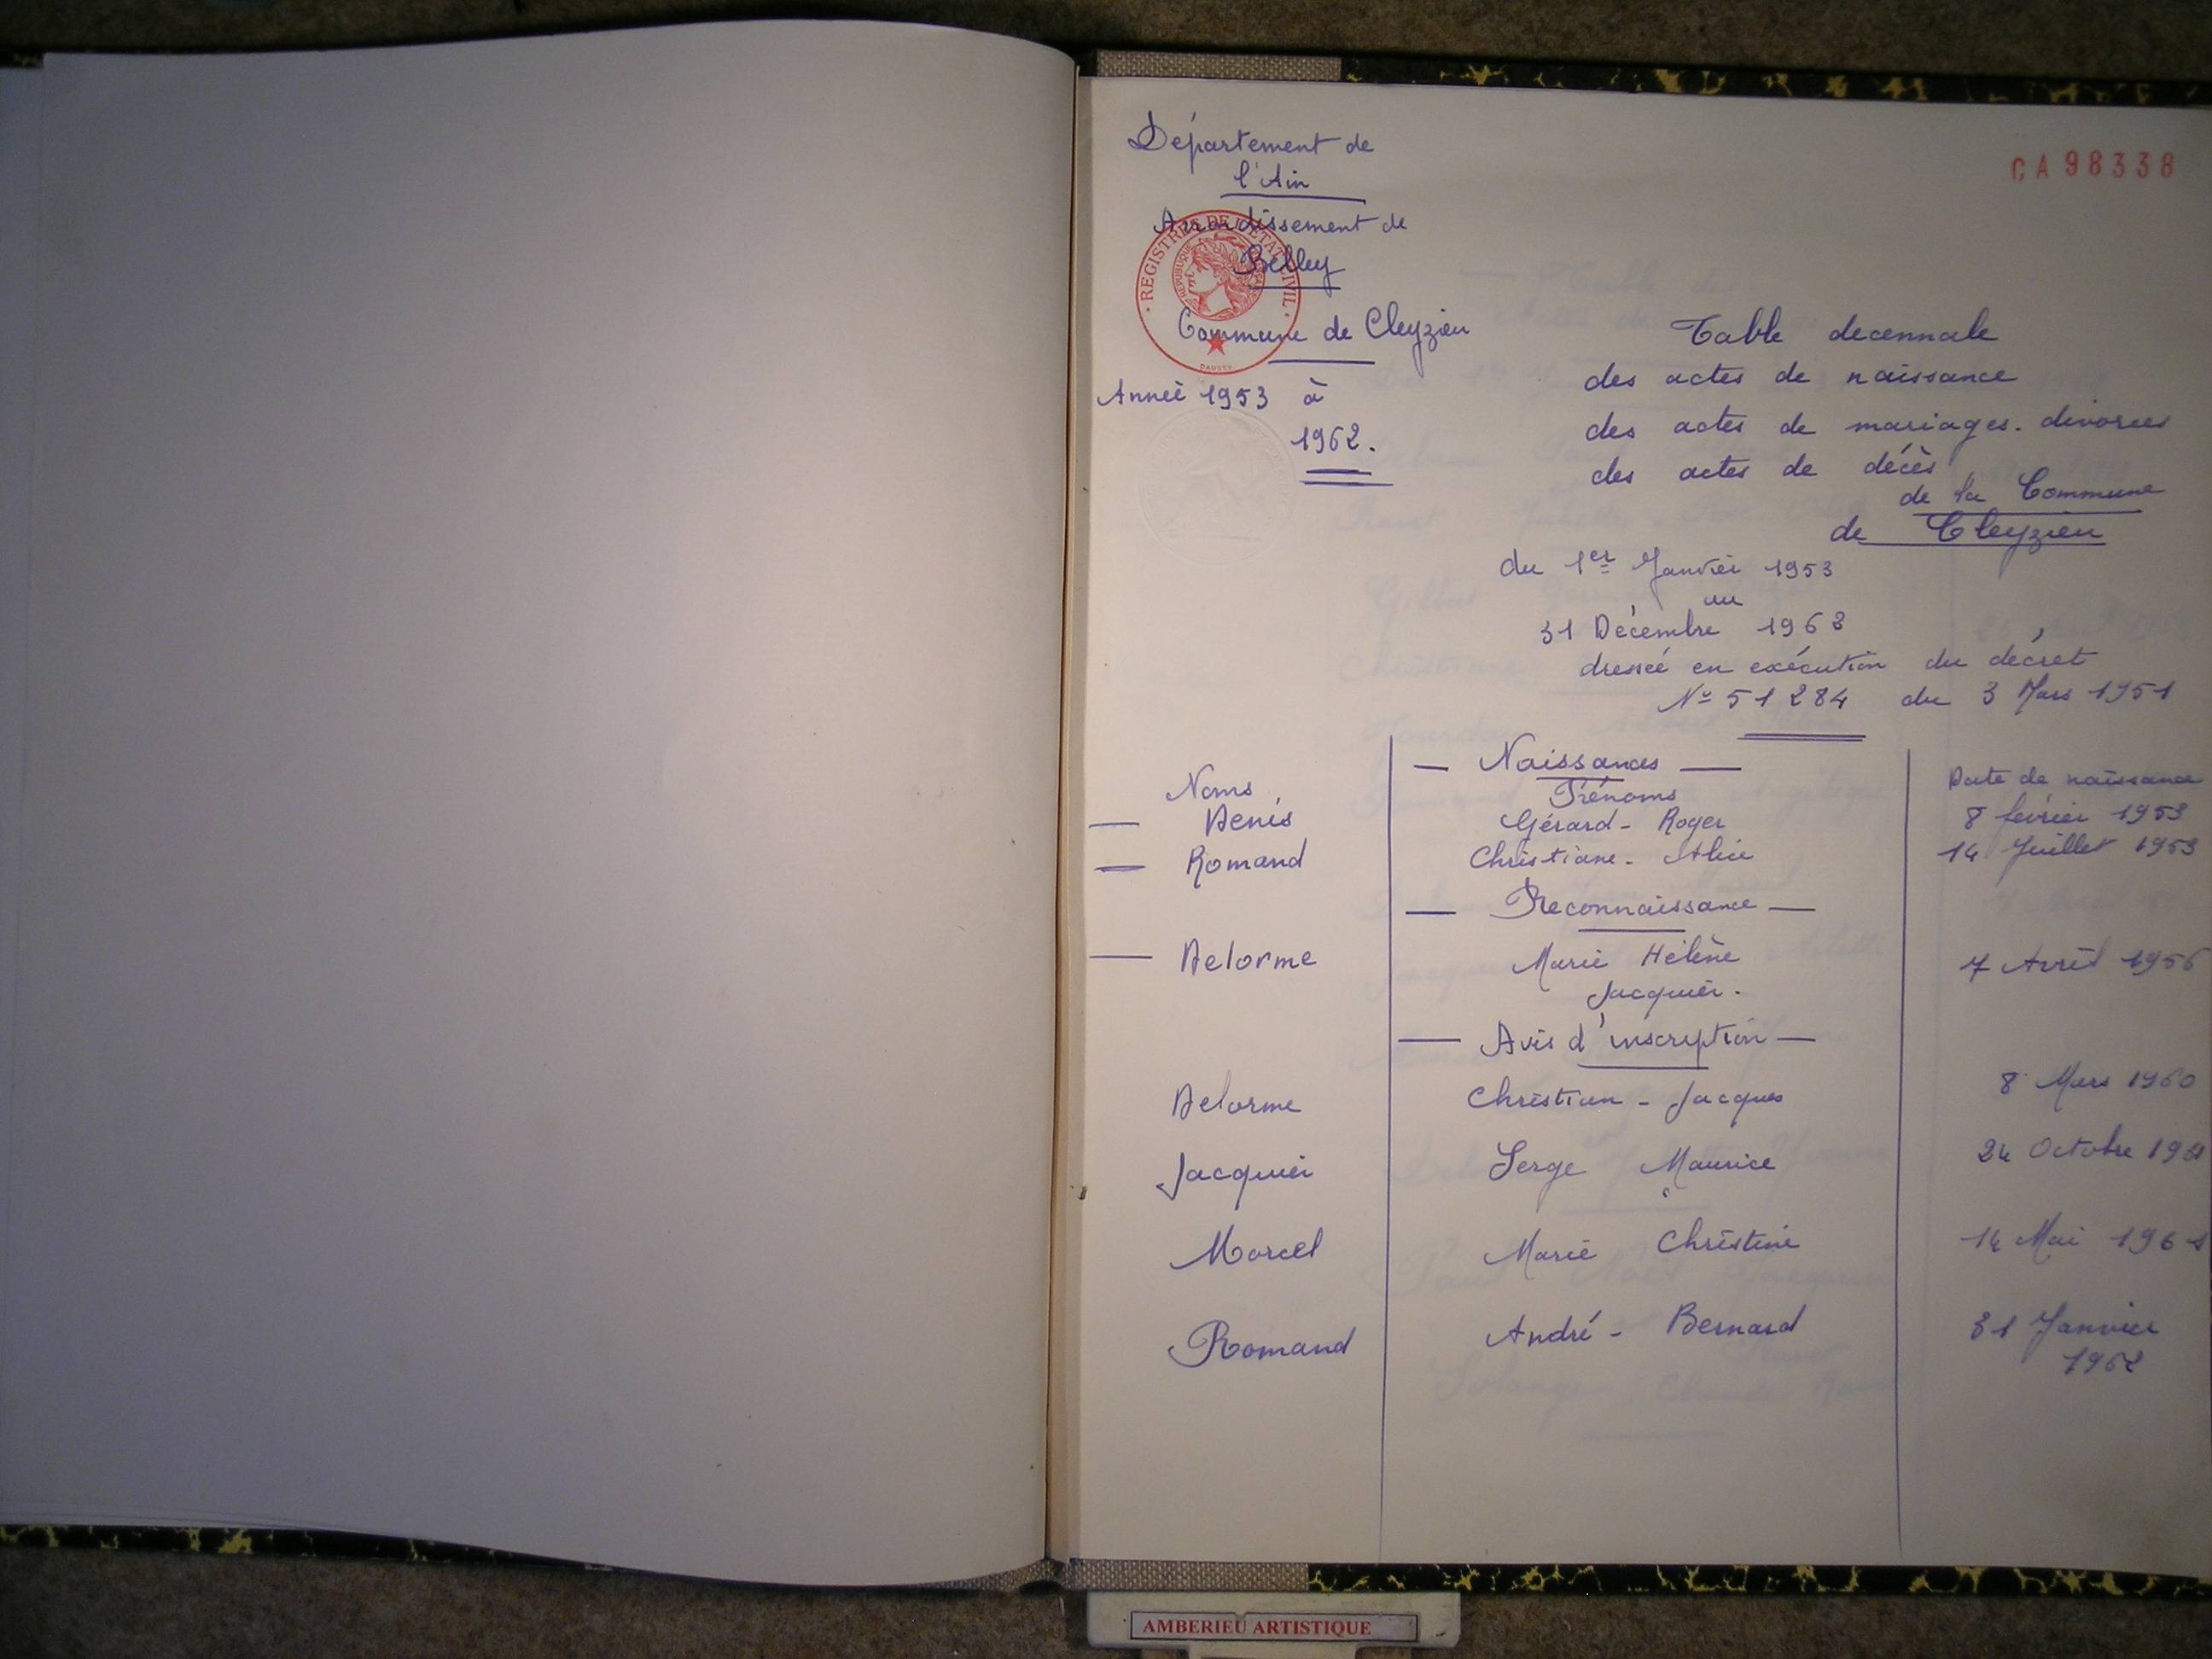 Département de
l'Ain
CA98338
Arrondissement de
Belley
REGISTRES DE L'ETAT CIVIL
Commune de Cleyzieu
Année 1953 à
1962.
Table decennale
des actes de naissance
des actes de mariages. divorces
des actes de décès
de la Commune
de Cleyzieu
du 1er Janvier 1953
au
31 Décembre 1962
dressée en exécution du décret
No 51 284 du 3 Mars 1951
— Naissances —
Noms Prénoms Date de naissance
— Denis Gérard - Roger 8 février 1953
— Romand Christiane - Alice 14 Juillet 1953
— Reconnaissance —
— Delorme Marie Hélène 7 Avril 1956
Jacquier.
— Avis d'inscription —
Delorme Christian - Jacques 8 Mars 1960
Jacquier Serge Maurice 24 Octobre
Morcel Marie Christine 14 Mai 1961
Romand André - Bernard 31 Janvier
1962
AMBERIEU ARTISTIQUE